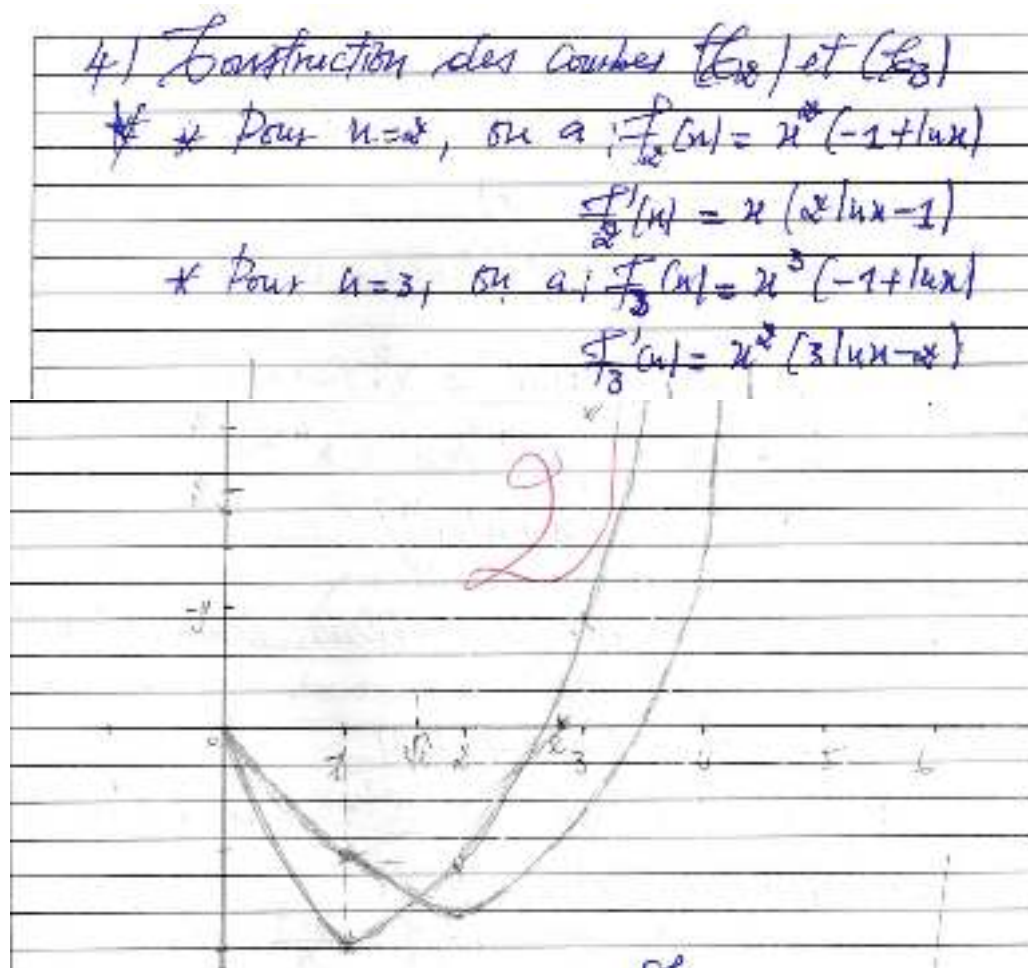 4) Construction des courbes (C2) et (C3)
* Pour n=2, on a : f2(x) = x²(-1+lnx)
f'2(x) = x(2lnx-1)
* Pour n=3, on a : f3(x) = x³(-1+lnx)
f'3(x) = x²(3lnx-2)
2
1 2 e 3 4 5 6